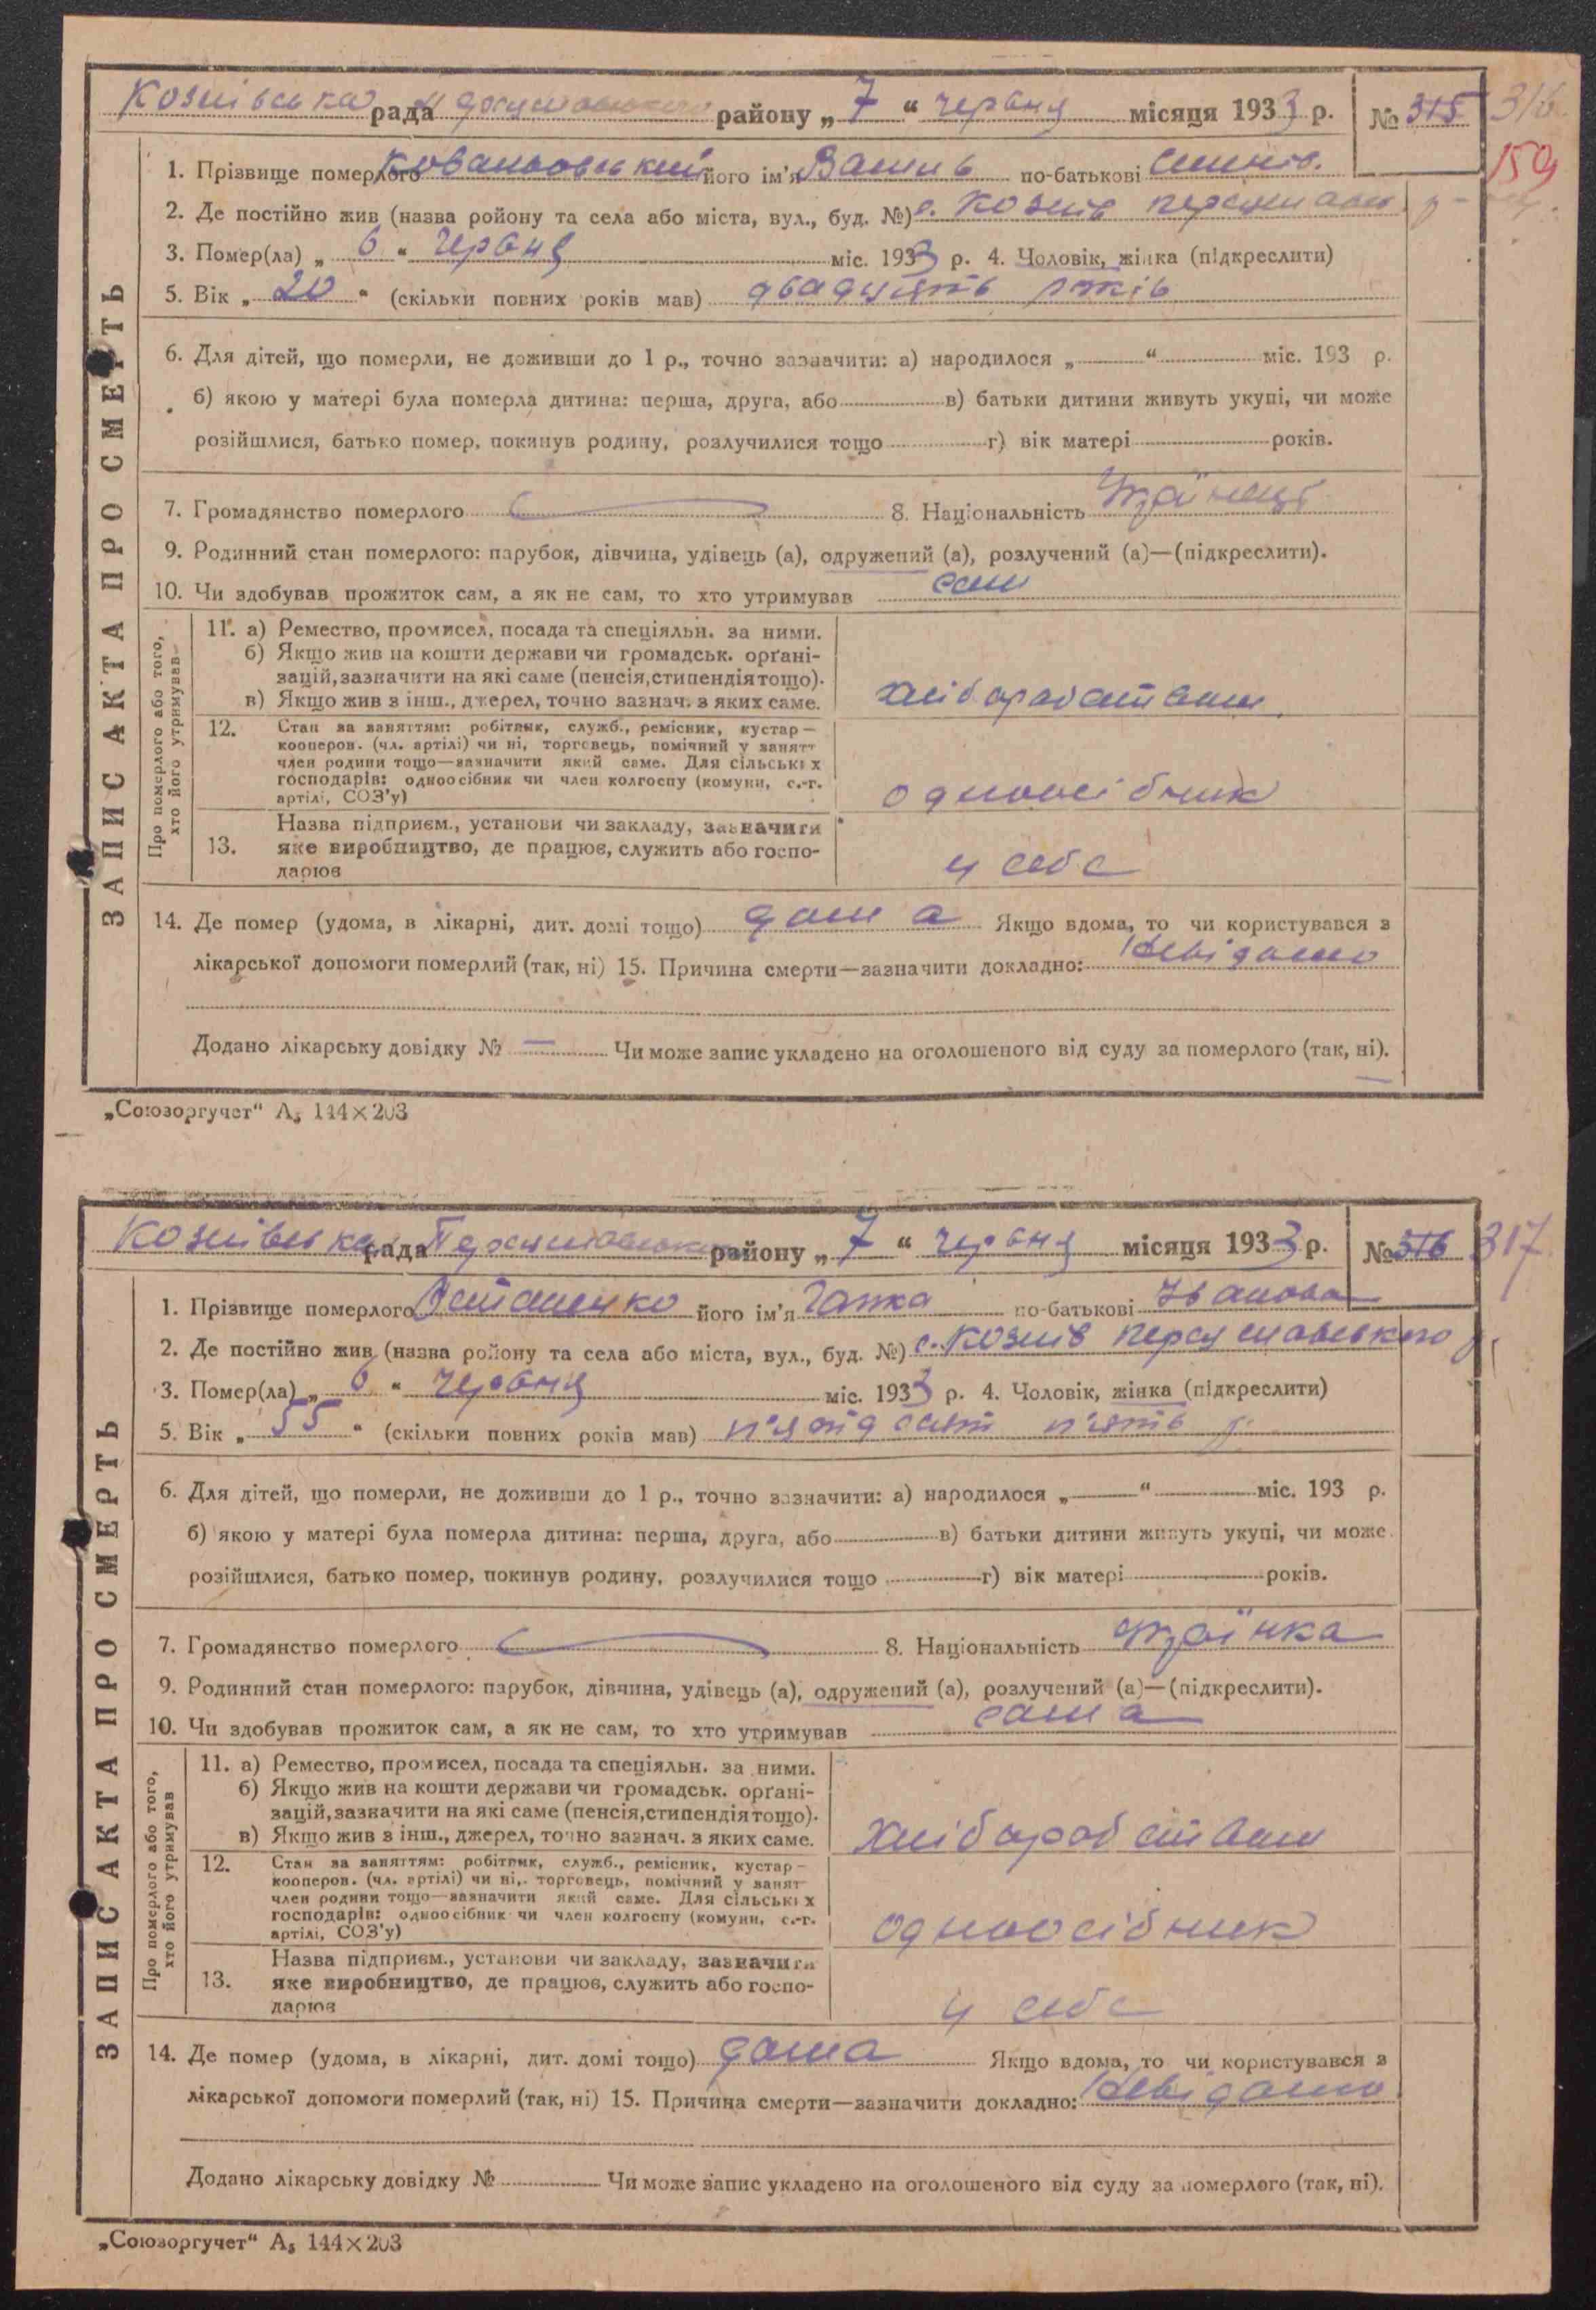 рада району „ 7 “ червня місяця 1933 р. № 315 316
159
1. Прізвище померлого його ім'я по-батькові
2. Де постійно жив (назва ройону та села або міста, вул., буд. №) с.
3. Помер(ла) „ 6 “ червня міс. 1933 р. 4. Чоловік, жінка (підкреслити)
5. Вік „ 20 “ (скільки повних років мав) двадцять років
6. Для дітей, що померли, не доживши до 1 р., точно зазначити: а) народилося „ “ міс. 193 р.
б) якою у матері була померла дитина: перша, друга, або в) батьки дитини живуть укупі, чи може
розійшлися, батько помер, покинув родину, розлучилися тощо г) вік матері років.
7. Громадянство померлого 8. Національність
9. Родинний стан померлого: парубок, дівчина, удівець (а), одружений (а), розлучений (а)—(підкреслити).
10. Чи здобував прожиток сам, а як не сам, то хто утримував сам
ЗАПИС АКТА ПРО СМЕРТЬ
Про померлого або того,
хто його утримував
11. а) Ремество, промисел, посада та спеціяльн. за ними.
б) Якщо жив на кошти держави чи громадськ. орґані-
зацій, зазначити на які саме (пенсія, стипендія тощо).
в) Якщо жив з інш., джерел, точно зазнач. з яких саме.
12. Стан за заняттям: робітник, служб., ремісник, кустар—
кооперов. (чл. артілі) чи ні, торговець, помічний у занятт
член родини тощо—зазначити який саме. Для сільських
господарів: одноосібник чи член колгоспу (комуни, с.-г.
артілі, СОЗ'у) одноосібник
Назва підприєм., установи чи закладу, зазначити
13. яке виробництво, де працює, служить або госпо-
дарює у себе
14. Де помер (удома, в лікарні, дит. домі тощо) дома Якщо вдома, то чи користувався з
лікарської допомоги померлий (так, ні) 15. Причина смерти—зазначити докладно: Невідомо
Додано лікарську довідку № — Чи може запис укладено на оголошеного від суду за померлого (так, ні).
„Союзоргучет“ А₅ 144×203
рада району „ 7 “ червня місяця 1933 р. № 316 317
1. Прізвище померлого його ім'я по-батькові Іванова
2. Де постійно жив (назва ройону та села або міста, вул., буд. №) с.
3. Помер(ла) „ 6 “ червня міс. 1933 р. 4. Чоловік, жінка (підкреслити)
5. Вік „ 55 “ (скільки повних років мав) п'ятдесят п'ять р.
6. Для дітей, що померли, не доживши до 1 р., точно зазначити: а) народилося „ “ міс. 193 р.
б) якою у матері була померла дитина: перша, друга, або в) батьки дитини живуть укупі, чи може
розійшлися, батько помер, покинув родину, розлучилися тощо г) вік матері років.
7. Громадянство померлого 8. Національність Українка
9. Родинний стан померлого: парубок, дівчина, удівець (а), одружений (а), розлучений (а)—(підкреслити).
10. Чи здобував прожиток сам, а як не сам, то хто утримував сама
ЗАПИС АКТА ПРО СМЕРТЬ
Про померлого або того,
хто його утримував
11. а) Ремество, промисел, посада та спеціяльн. за ними.
б) Якщо жив на кошти держави чи громадськ. орґані-
зацій, зазначити на які саме (пенсія, стипендія тощо).
в) Якщо жив з інш., джерел, точно зазнач. з яких саме.
12. Стан за заняттям: робітник, служб., ремісник, кустар—
кооперов. (чл. артілі) чи ні, торговець, помічний у занят
член родини тощо—зазначити який саме. Для сільських
господарів: одноосібник чи член колгоспу (комуни, с.-г.
артілі, СОЗ'у) одноосібник
Назва підприєм., установи чи закладу, зазначити
13. яке виробництво, де працює, служить або госпо-
дарює у себе
14. Де помер (удома, в лікарні, дит. домі тощо) дома Якщо вдома, то чи користувався з
лікарської допомоги померлий (так, ні) 15. Причина смерти—зазначити докладно: Невідомо
Додано лікарську довідку № Чи може запис укладено на оголошеного від суду за померлого (так, ні).
„Союзоргучет“ А₅ 144×203